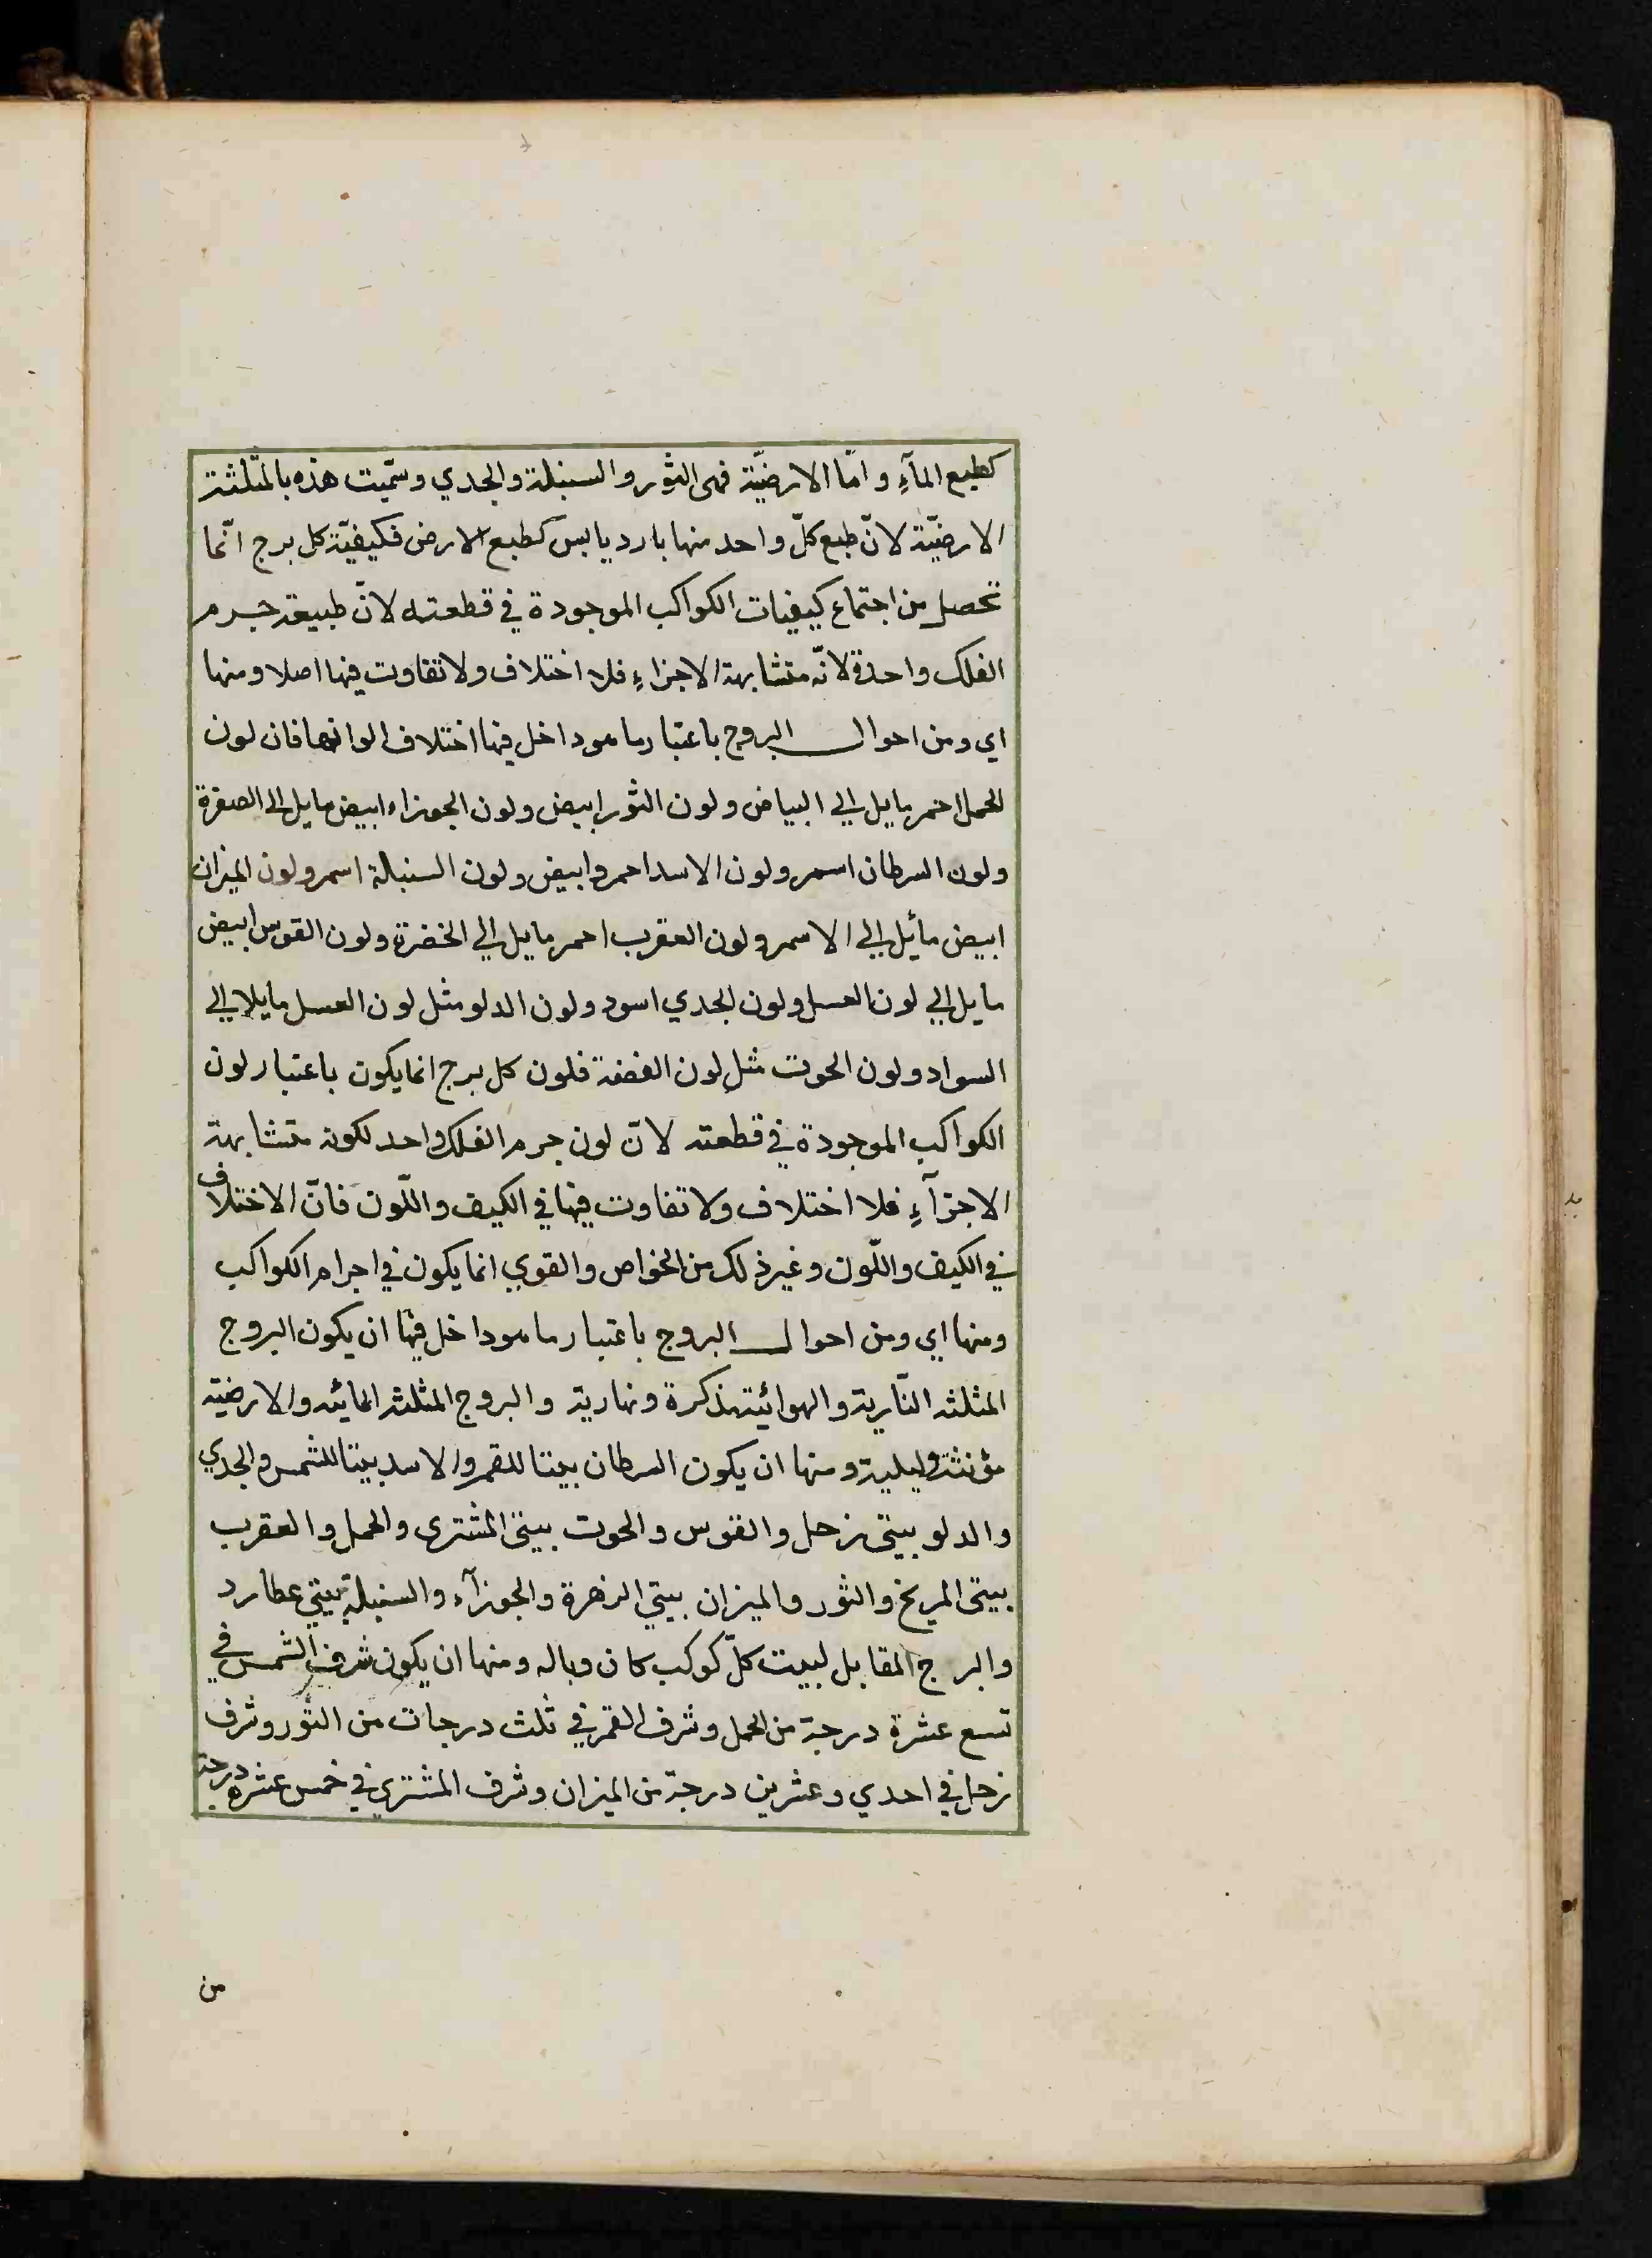 كطبع المآءِ وامّا الارضيّة فهى الثور والسنبلة والجدي وسمّيت هذه بالمثلثة
الارضيّة لانّ طبع كلّ واحد منها بارد يابس كطبع الارض فكيفيّة كل برج انّما
تحصل من اجتماع كيفيات الكواكب الموجودة في قطعته لانّ طبيعة جرم
الفلك واحدة لانّه متشابهة الاجزاءِ فلا اختلاف ولا تفاوت فيها اصلا ومنها
اي ومن احوال البروج باعتبار ما هو داخل فيها اختلاف الوانها فان لون
الحمل احمر مايل الي البياض ولون الثور ابيض ولون الجوزاء ابيض مايل الى الصفرة
ولون السرطان اسمر ولون الاسد احمر وابيض ولون السنبلة اسمر ولون الميزان
ابيض مائل الي الاسمر ولون العقرب احمر مايل الي الخضرة ولون القوس ابيض
مايل الي لون العسل ولون الجدي اسود ولون الدلو مثل لون العسل مايلا الي
السواد ولون الحوت مثل لون الفضة فلون كل برج انما يكون باعتبار لون
الكواكب الموجودة في قطعته لانّ لون جرم الفلك واحد لكونه متشابهة
الاجزآءِ فلا اختلاف ولا تفاوت فيها في الكيف واللّون فانّ الاختلاف
في الكيف واللّون وغير ذلك من الخواص والقوي انما يكون في اجرام الكواكب
ومنها اي ومن احوال البروج باعتبار ما هو داخل فيها ان يكون البروج
المثلثه النّارية والهوائية مذكرة ونهارية والبروج المثلثه المائيه والارضيّة
مؤنثة وليلية ومنها ان يكون السرطان بيتا للقمر والاسد بيتا للشمس والجدي
والدلو بيتى زحل والقوس والحوت بيتى المشترى والحمل والعقرب
بيتى المريخ والثور والميزان بيتي الزهرة والجوزآء والسنبلة بيتي عطارد
والبرج المقابل لبيت كلّ كوكب كان وباله ومنها ان يكون شرف الشمس في
تسع عشرة درجة من الحمل وشرف القمر في ثلث درجات من الثور وشرف
زحل في احدي وعشرين درجة من الميزان وشرف المشتري في خمس عشرة درجة
من